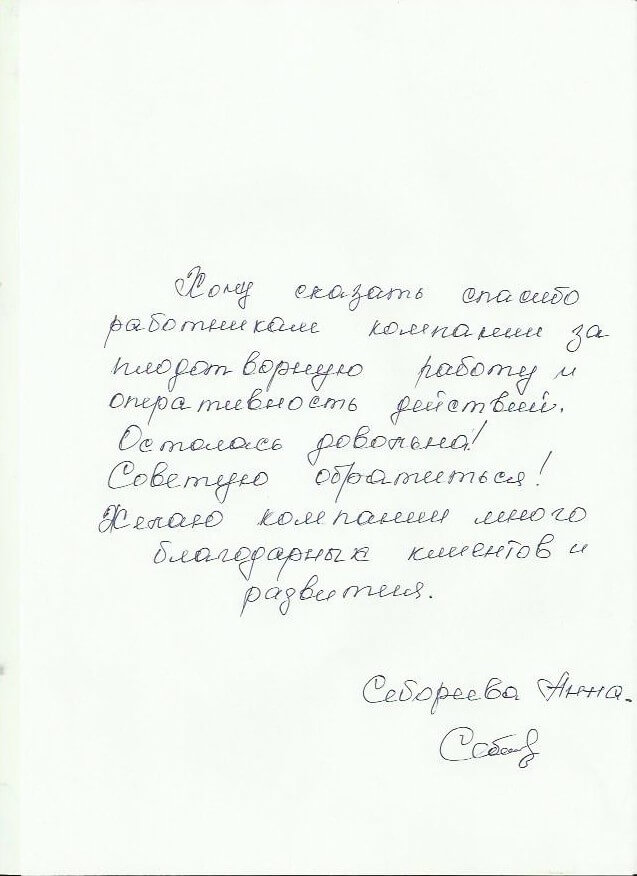 Хочу сказать спасибо
работникам компании за
плодотворную работу и
оперативность действий.
Осталась довольна!
Советую обратиться!
Желаю компании много
благодарных клиентов и
развития.
Себореева Анна.